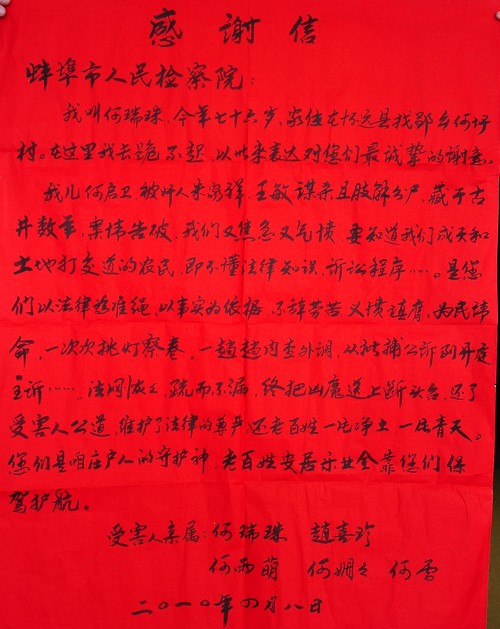 感谢信
蚌埠市人民检察院:
我叫何瑞珠,今年七十六岁,家住在怀远县找郢乡何圩
村。在这里我长跪不起,以此来表达对您们最诚挚的谢意。
我儿何启卫,被奸人朱家祥,王敏谋杀且肢解分尸,藏于古
井数年,案情告破,我们又焦急又气愤 要知道我们成天和
土地打交道的农民,即不懂法律知识,诉讼程序……。是您
们以法律为准绳,以事实为依据 不辞劳苦 义愤填膺,为民请
命,一次次挑灯察卷,一趟趟内查外调,从批捕公诉到开庭
主诉……,法网恢々,疏而不漏,终把凶魔送上断头台,还了
受害人公道,维护了法律的尊严还老百姓一片净土 一片青天。
您们是咱庄户人的守护神,老百姓安居乐业全靠您们保
驾护航。
受害人亲属:何瑞珠 赵喜珍
何雨萌 何姗々 何雪
二〇一〇年四月八日